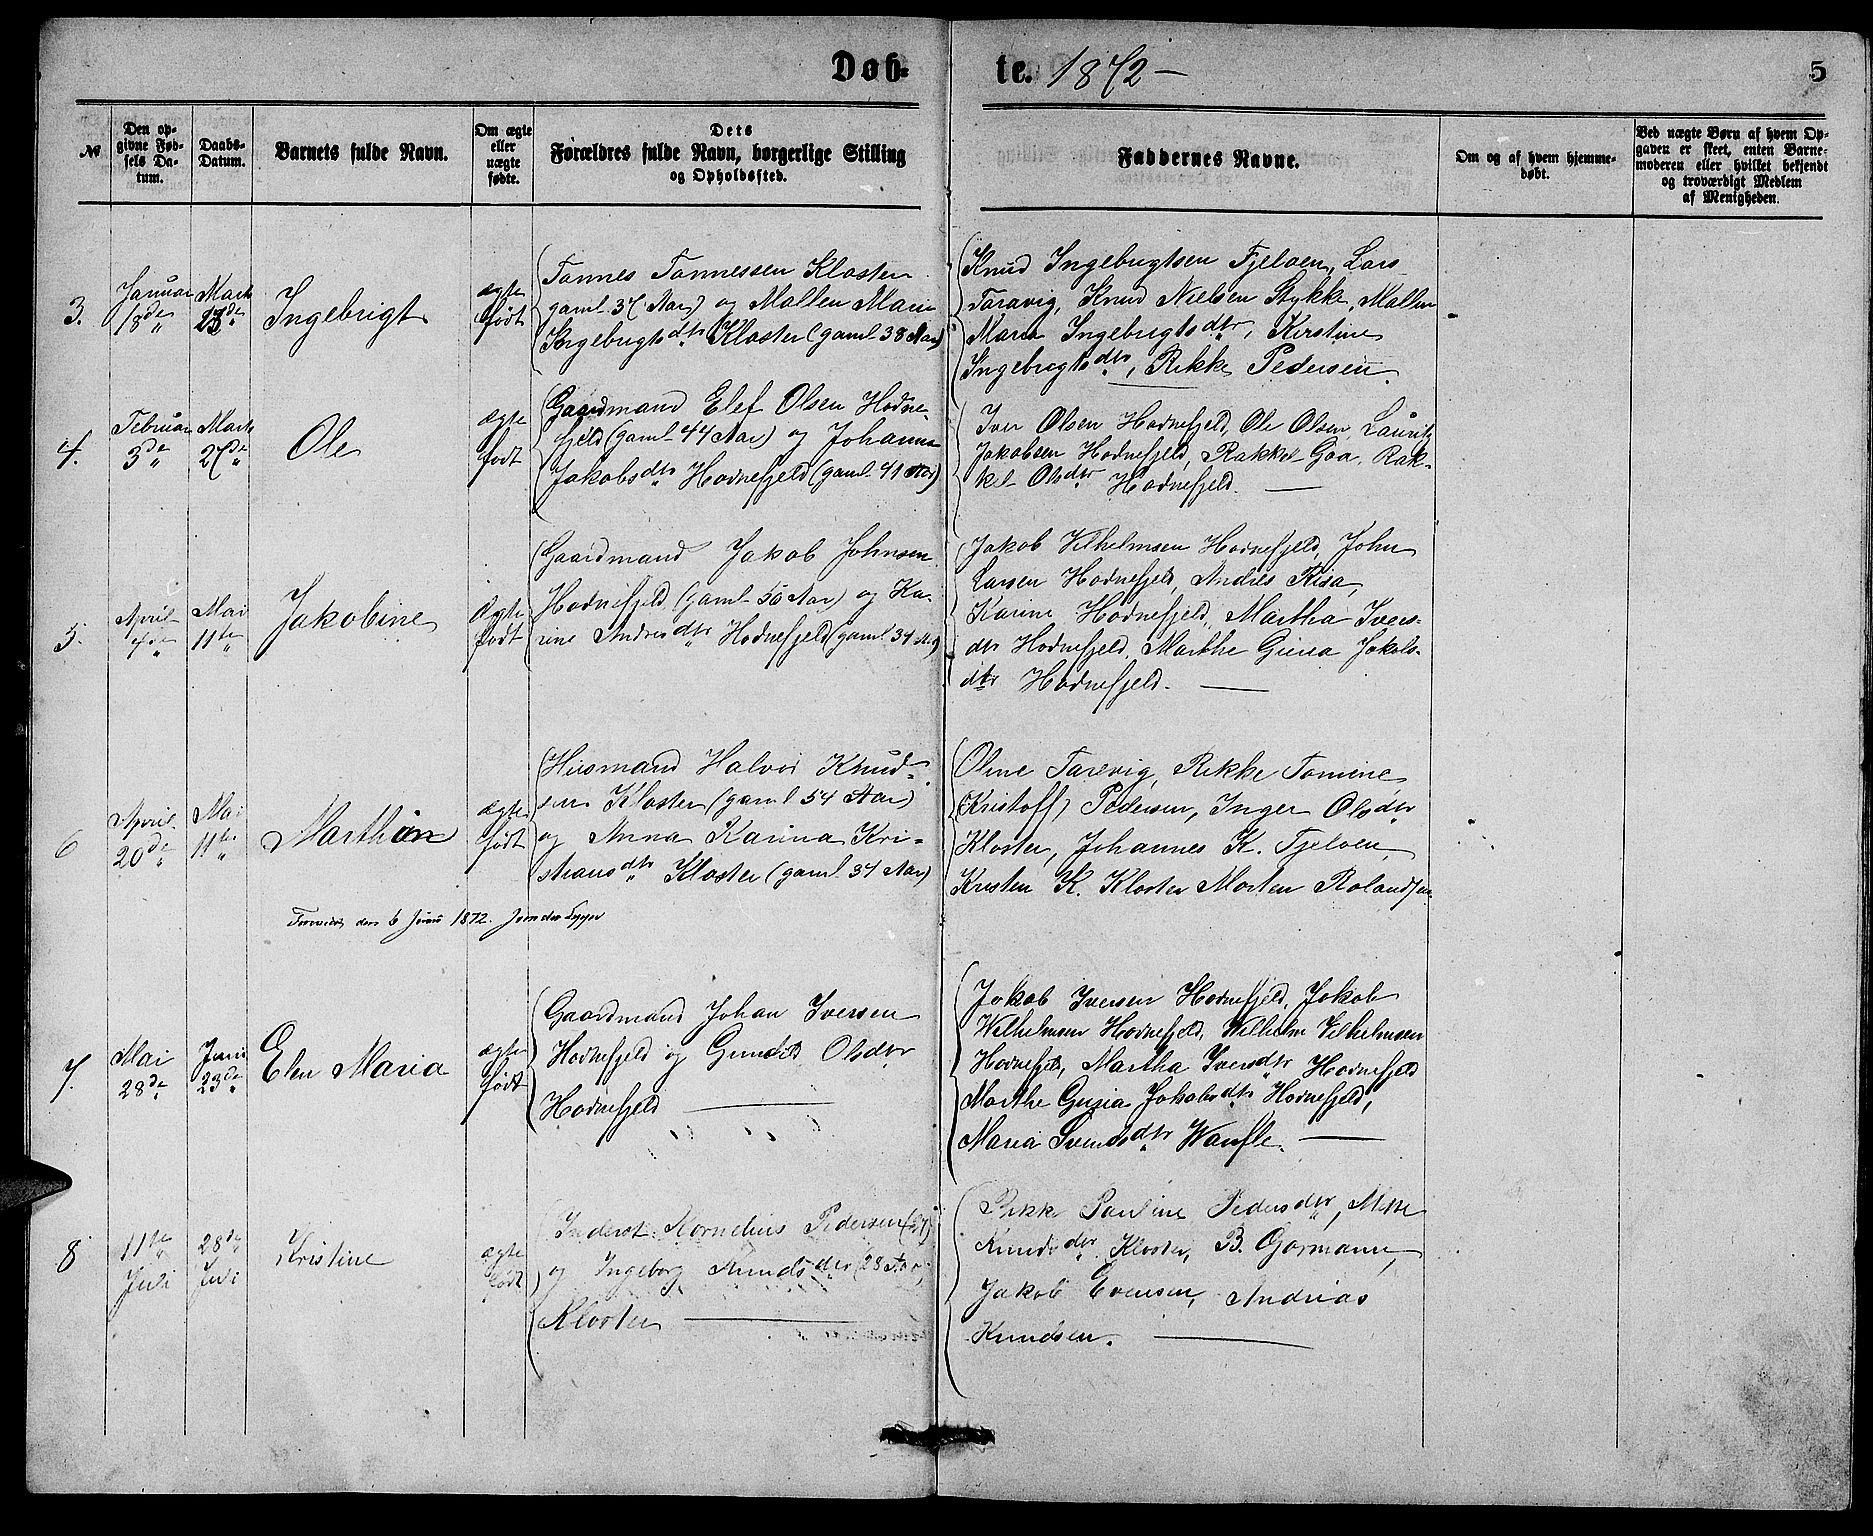 Døb-
te. 1872 —
5
№
Den opgivne Fødsels Datum.
Daabs-Datum.
Barnets fulde Navn.
Om ægte eller uægte fødte.
Dets Forældres fulde Navn, borgerlige Stilling og Opholdssted.
Faddernes Navne.
Om og af hvem hjemmedøbt.
Ved uægte Børn af hvem Opgaven er skeet, enten Barnemoderen eller hvilket bekjendt og troværdigt Medlem af Menigheden.
3.
Januar
18de
Marts
Ingebrigt
ægte
født
Tønnes Tønnessen Kloster
gaml 37 Aar) og Mallen Marie
Ingebrigtsdtr Kloster (gaml 38 Aar)
Knud Ingebrigtsen Fjeløen, Lars
Taravig, Knud Nielsen Stykke, Mallen
Maria Ingebrigtsdtr, Kirstine
Ingebrigtsdtr, Rikke Pedersen.
4.
Februar
3de
Marts
27de
Ole
ægte
født
Gaardmand Elef Olsen Hodne-
fjeld (gaml 44 Aar) og Johanne
Jakobsdtr Hodnefjeld (gaml 41 Aar)
Iver Olsen Hodnefjeld, Ole Olsen, Lauritz
Jakobsen Hodnefjeld, Rakkel Goa, Rak-
kel Olsdtr Hodnefjeld. —
5.
April
4de
Mai
11te
Jakobine
Ægte
født
Gaardmand Jakob Johnsen
Hodnefjeld (gaml 50 Aar) og Ka-
rine Andresdtr Hodnefjeld (gaml 34 Aar)
Jakob Vilhelmsen Hodnefjeld, John
Larsen Hodnefjeld, Andres Risa,
Karine Hodnefjeld, Martha Ivers-
dtr Hodnefjeld, Marthe Guria Jakobs-
dtr Hodnefjeld. —
6
April
20de
Mai
11te
Marthin
ægte
født
Huusmand Halvor Knud-
sen Kloster (gaml 54 Aar)
og Anna Karina Kri-
stiansdtr Kloster (gaml 34 Aar)
Oline Tarevig, Rikke Tomine
(Kristoff) Pedersen, Inger Olsdtr
Kloster, Johannes K. Fjeløen,
Kristen K. Kloster Morten Rolandsen
den 6 Juni 1872.
7.
Mai
28de
Juni
23de
Elen Maria
ægte
født
Gaardmand Johan Iversen
Hodnefjeld og Gunild Olsdtr
Hodnefjeld —
Jakob Iversen Hodnefjeld, Jakob
Wilhelmsen Hodnefjeld, Wilhelm Vilhelmsen
Hodnefjeld, Martha Iversdtr Hodnefjeld
Marthe Guria Jakobsdtr Hodnefjeld,
Maria Svendsdtr —
8
11te
Juli
28de
Juli
Kristine
ægte
født
Inderst Kornelius Pedersen (27)
og Ingeborg Knudsdtr (28 Aar)
Kloster —
Rikke Pauline Pedersdtr, Mette
Knudsdtr Kloster, B. Gormann,
Jakob Evensen, Andreas
Knudsen. —